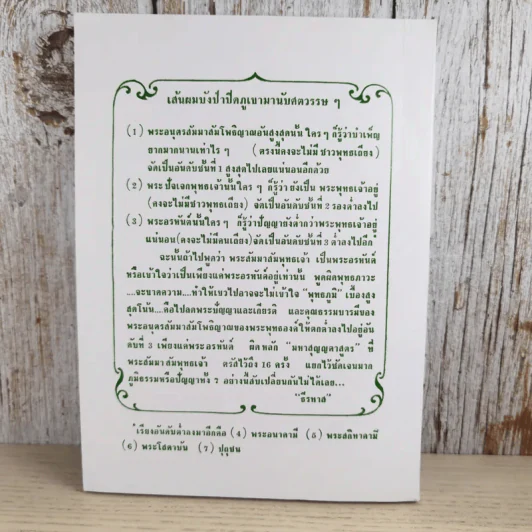 เส้นผมบังป่าปิดภูเขามานับศตวรรษ ๆ
(1) พระอนุตรสัมมาสัมโพธิญาณอันสูงสุดนั้น ใคร ๆ ก็รู้ว่าบำเพ็ญ
ยากมากนานเท่าไร ๆ (ตรงนี้คงจะไม่มี ชาวพุทธเถียง)
จัดเป็นอันดับชั้นที่ 1 สูงสุดไปเลยแน่นอนอีกด้วย
(2) พระปัจเจกพุทธเจ้านั้นใคร ๆ ก็รู้ว่า ยังเป็น พระพุทธเจ้าอยู่
(คงจะไม่มีชาวพุทธเถียง) จัดเป็นอันดับชั้นที่ 2 รองต่ำลงไป
(3) พระอรหันต์นั้นใคร ๆ ก็รู้ว่าปัญญายังต่ำกว่าพระพุทธเจ้าอยู่
แน่นอน(คงจะไม่มีคนเถียง)จัดเป็นอันดับชั้นที่ 3 ต่ำลงไปอีก
ฉะนั้นถ้าไปพูดว่า พระสัมมาสัมพุทธเจ้า เป็นพระอรหันต์
หรือเข้าใจว่าเป็นเพียงแค่พระอรหันต์อยู่เท่านั้น พูดผิดพุทธภาวะ
....จะขาดความ....ทำให้เขวไปอาจจะไม่เข้าใจ "พุทธภูมิ" เบื้องสูง
สุดโน้น....คือไปลดพระปัญญาและเกียรติ และคุณธรรมบารมีของ
พระอนุตรสัมมาสัมโพธิญาณของพระพุทธองค์ให้ตกต่ำลงไปอยู่อัน
ดับที่ 3 เพียงแค่พระอรหันต์ ผิดหลัก "มหาสุญญตาสูตร" ที่
พระสัมมาสัมพุทธเจ้า ตรัสไว้ถึง 16 ครั้ง แยกไว้ชัดเจนมาก
ภูมิธรรมหรือปัญญาทั้ง 7 อย่างนี้สับเปลี่ยนกันไม่ได้เลย...
"ธีรทาส"
*เรียงอันดับต่ำลงมาอีกคือ (4) พระอนาคามี (5) พระสกิทาคามี
(6) พระโสดาบัน (7) ปุถุชน